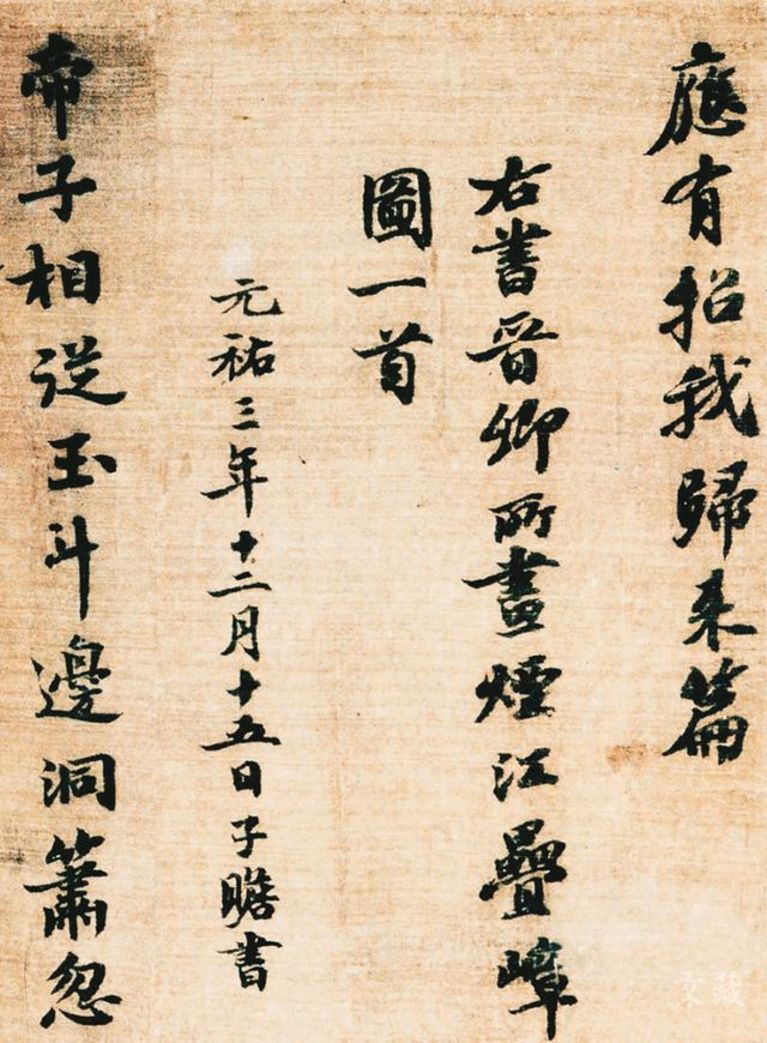 應有招我歸來篇
右書晉卿所畫煙江疊嶂
圖一首
元祐三年十二月十五日子瞻書
帝子相從玉斗邊洞簫忽
文藏